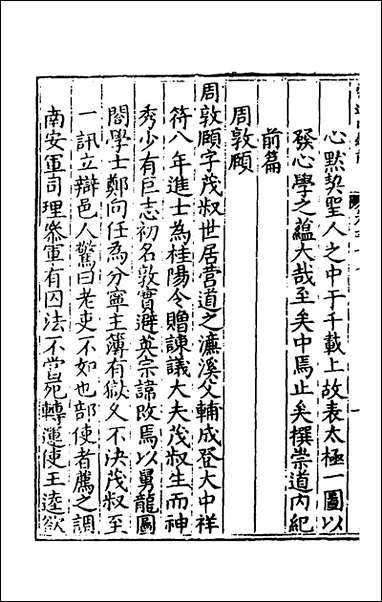 心默契聖人之中于千載上故表太極一圖以
發心學之蘊大哉至矣中焉止矣撰崇道內紀
前篇
周敦頥
周敦頥字茂叔世居營道之濂溪父輔成登大中祥
符八年進士為桂陽令贈諫議大夫茂叔生而神
秀少有巨志初名敦實避英宗諱改焉以舅龍圖
閣學士鄭向任為分寧主簿有獄久不決茂叔至
一訊立辯邑人驚曰老吏不如也部使者薦之調
南安軍司理叅軍有囚法不當死轉運使王逵欲